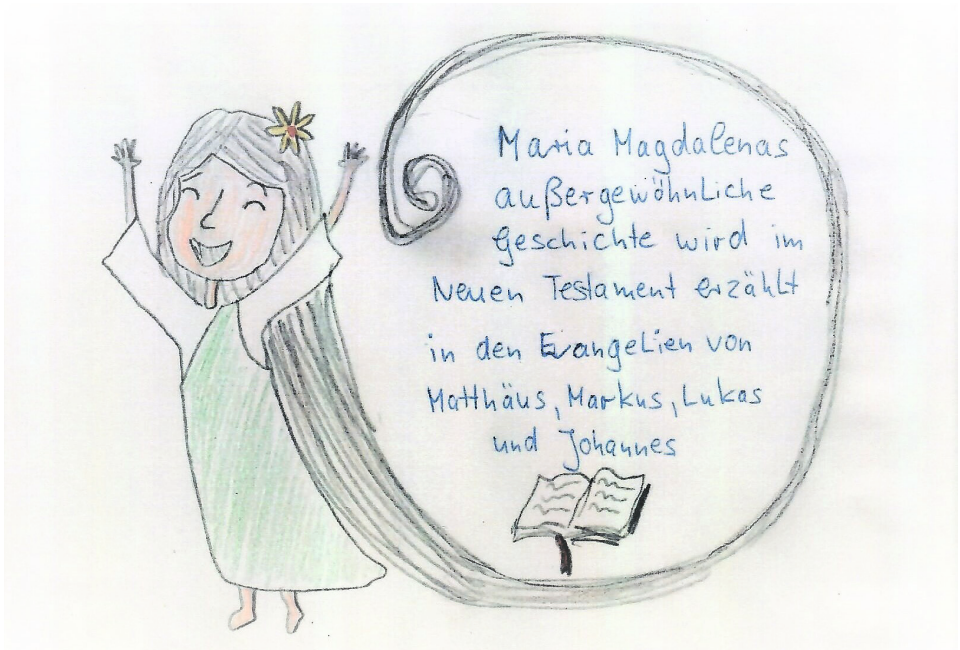 Maria Magdalenas
außergewöhnliche
Geschichte wird im
Neuen Testament erzählt
in den Evangelien von
Matthäus, Markus, Lukas
und Johannes